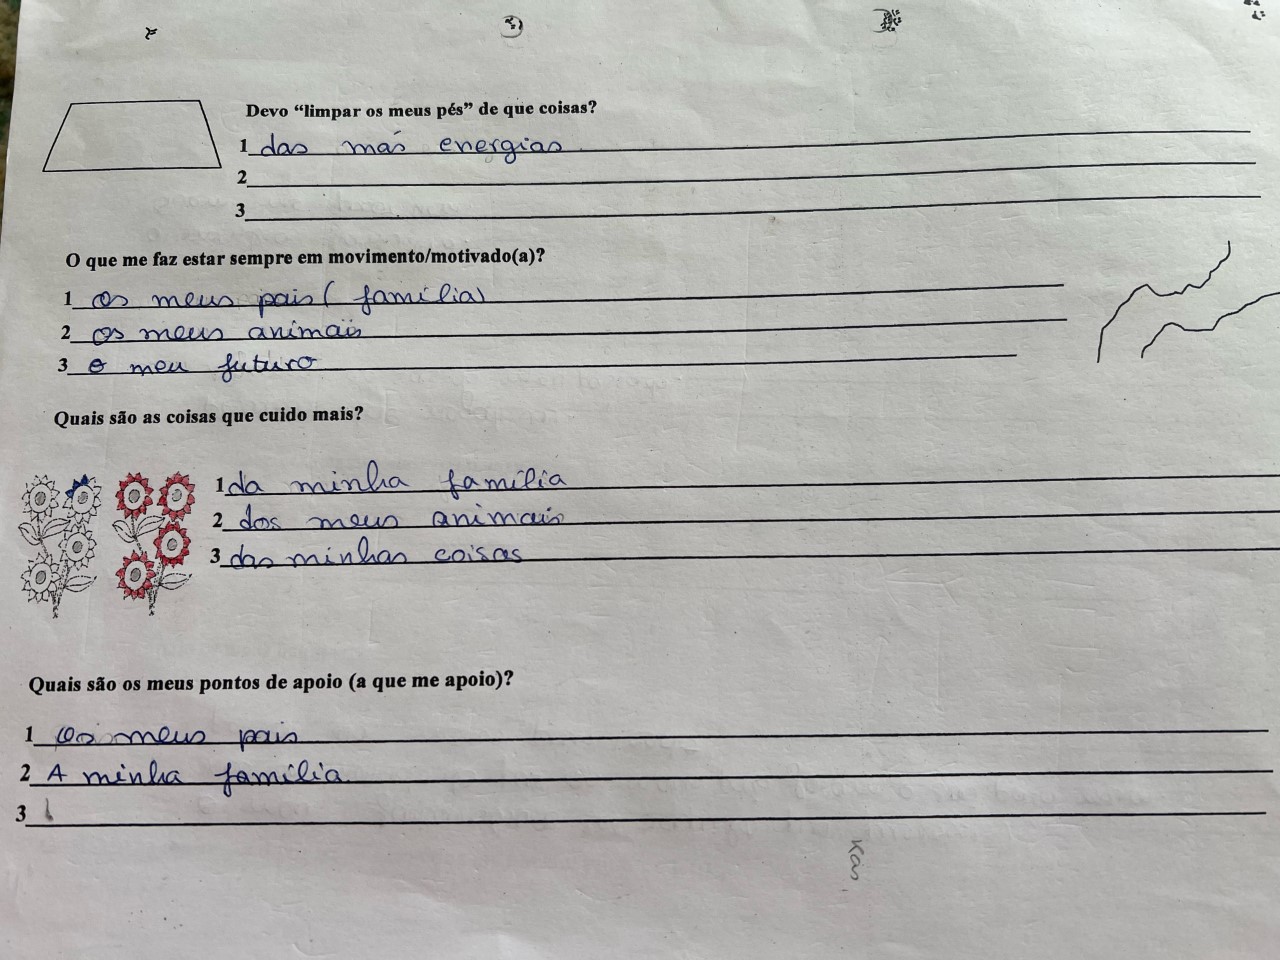 Devo “limpar os meus pés” de que coisas?
1 das más energias
2
3
O que me faz estar sempre em movimento/motivado(a)?
1 os meus pais (família)
2 os meus animais
3 o meu futuro
Quais são as coisas que cuido mais?
1 da minha família
2 dos meus animais
3 das minhas coisas
Quais são os meus pontos de apoio (a que me apoio)?
1 Os meus pais
2 A minha família
3